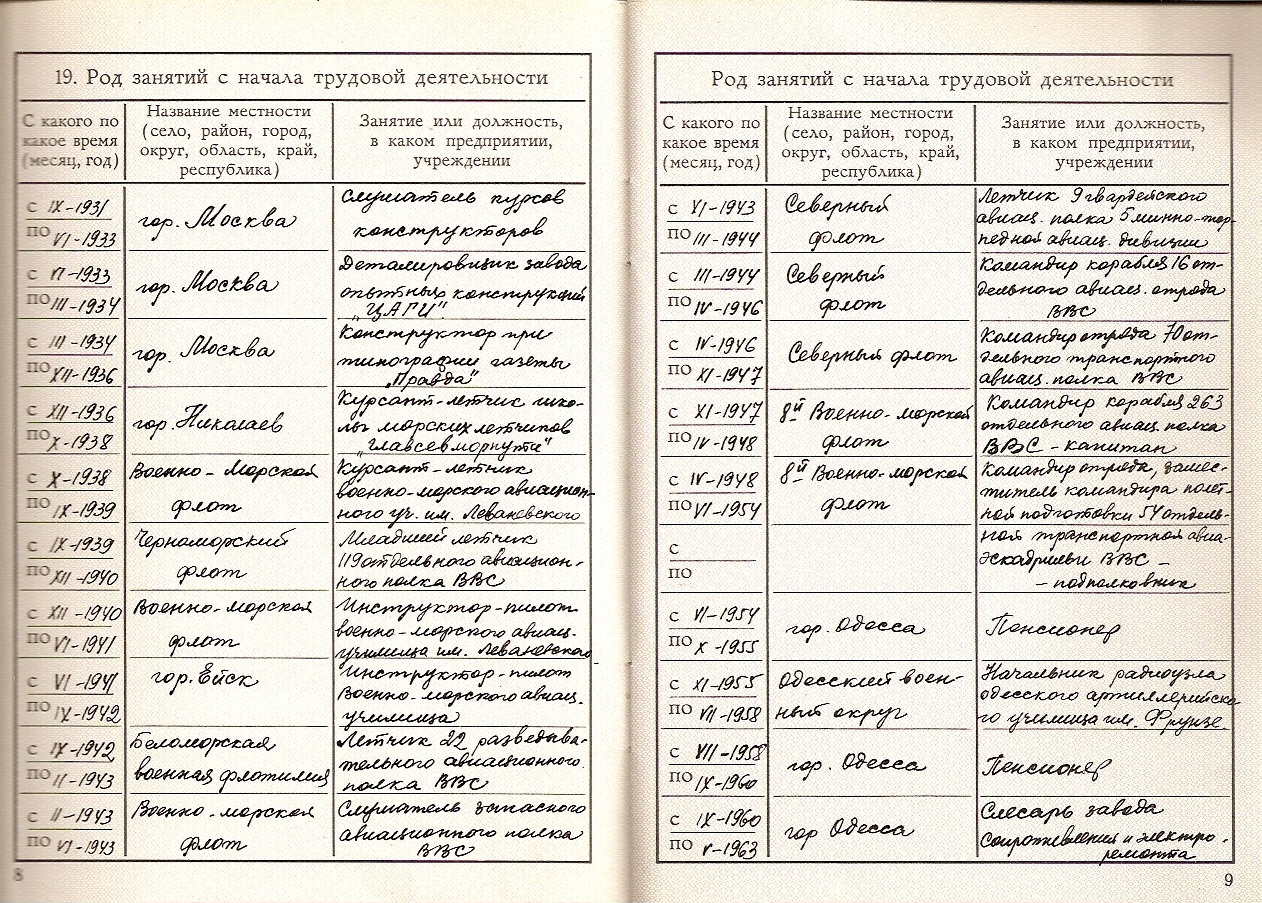 19. Род занятий с начала трудовой деятельности
С какого по
какое время
(месяц, год)
Название местности
(село, район, город,
округ, область, край,
республика)
Занятие или должность,
в каком предприятии,
учреждении
с IX-1931
по VI-1933
гор. Москва
Слушатель курсов
конструкторов
с VI-1933
по III-1934
гор. Москва
Деталировщик завода
опытных конструкций
„ЦАГИ"
с III-1934
по XII-1936
гор. Москва
Конструктор при
типографии газеты
„Правда"
с XII-1936
по X-1938
гор. Николаев
Курсант-летчик шко-
лы морских летчиков
„главсевморпути"
с X-1938
по IX-1939
Военно-Морской
флот
Курсант-летчик
военно-морского авиацион-
ного уч. им. Леваневского
с IX-1939
по XII-1940
Черноморский
флот
Младший летчик
119 отдельного авиацион-
ного полка ВВС
с XII-1940
по VI-1941
Военно-морской
флот
Инструктор-пилот
военно-морского авиац.
училища им. Леваневского
с VI-1941
по IX-1942
гор. Ейск
Инструктор-пилот
Военно-морского авиац.
училища
с IX-1942
по II-1943
Беломорская
военная флотилия
Летчик 22 разведыва-
тельного авиационного
полка ВВС
с II-1943
по VI-1943
Военно-морской
флот
Слушатель запасного
авиационного полка
ВВС
8
Род занятий с начала трудовой деятельности
С какого по
какое время
(месяц, год)
Название местности
(село, район, город,
округ, область, край,
республика)
Занятие или должность,
в каком предприятии,
учреждении
с VI-1943
по III-1944
Северный
флот
Летчик 9 гвардейского
авиац. полка 5 минно-тор-
педной авиац. дивизии
с III-1944
по IV-1946
Северный
флот
Командир корабля 16 от-
дельного авиац. отряда
ВВС
с IV-1946
по XI-1947
Северный флот
Командир отряда 70 от-
дельного транспортного
авиац. полка ВВС
с XI-1947
по IV-1948
8й Военно-морской
флот
Командир корабля 263
отдельного авиац. полка
ВВС - капитан
с IV-1948
по VI-1954
8й Военно-морской
флот
Командир отряда, замес-
титель командира полет-
ной подготовки 54 отдель-
с
по
ной транспортной авиа-
эскадрильи ВВС -
- подполковник
с VI-1954
по X-1955
гор. Одесса
Пенсионер
с XI-1955
по VII-1958
Одесский воен-
ный округ
Начальник радиоузла
одесского артиллерийско-
го училища им. Фрунзе.
с VII-1958
по IX-1960
гор. Одесса
Пенсионер
с IX-1960
по V-1963
гор Одесса
Слесарь завода
Сопротивления и электро-
ремонта
9